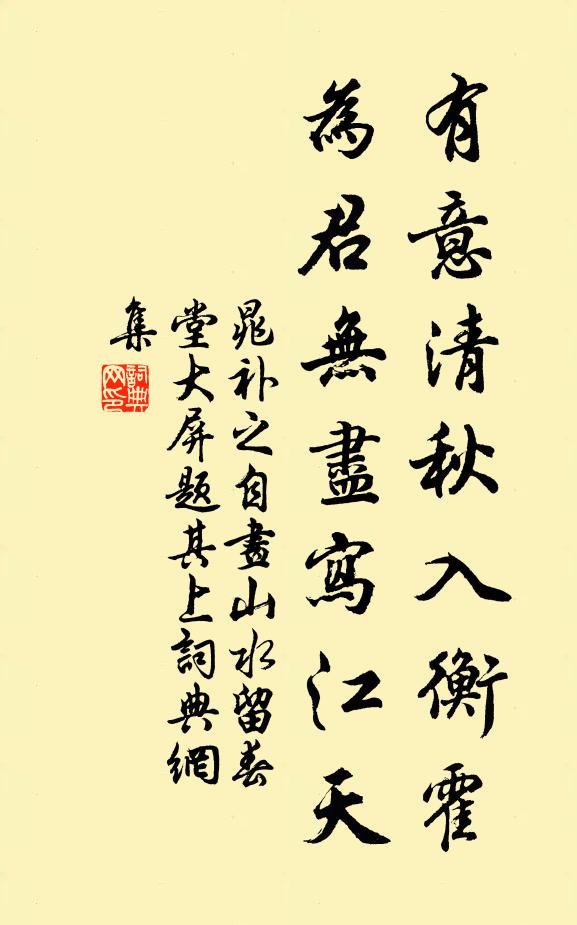 有意清秋入衡霍
為君無盡寫江天
晁补之自畫山水留春
堂大屏題其上詞典網
集
詞典
网印